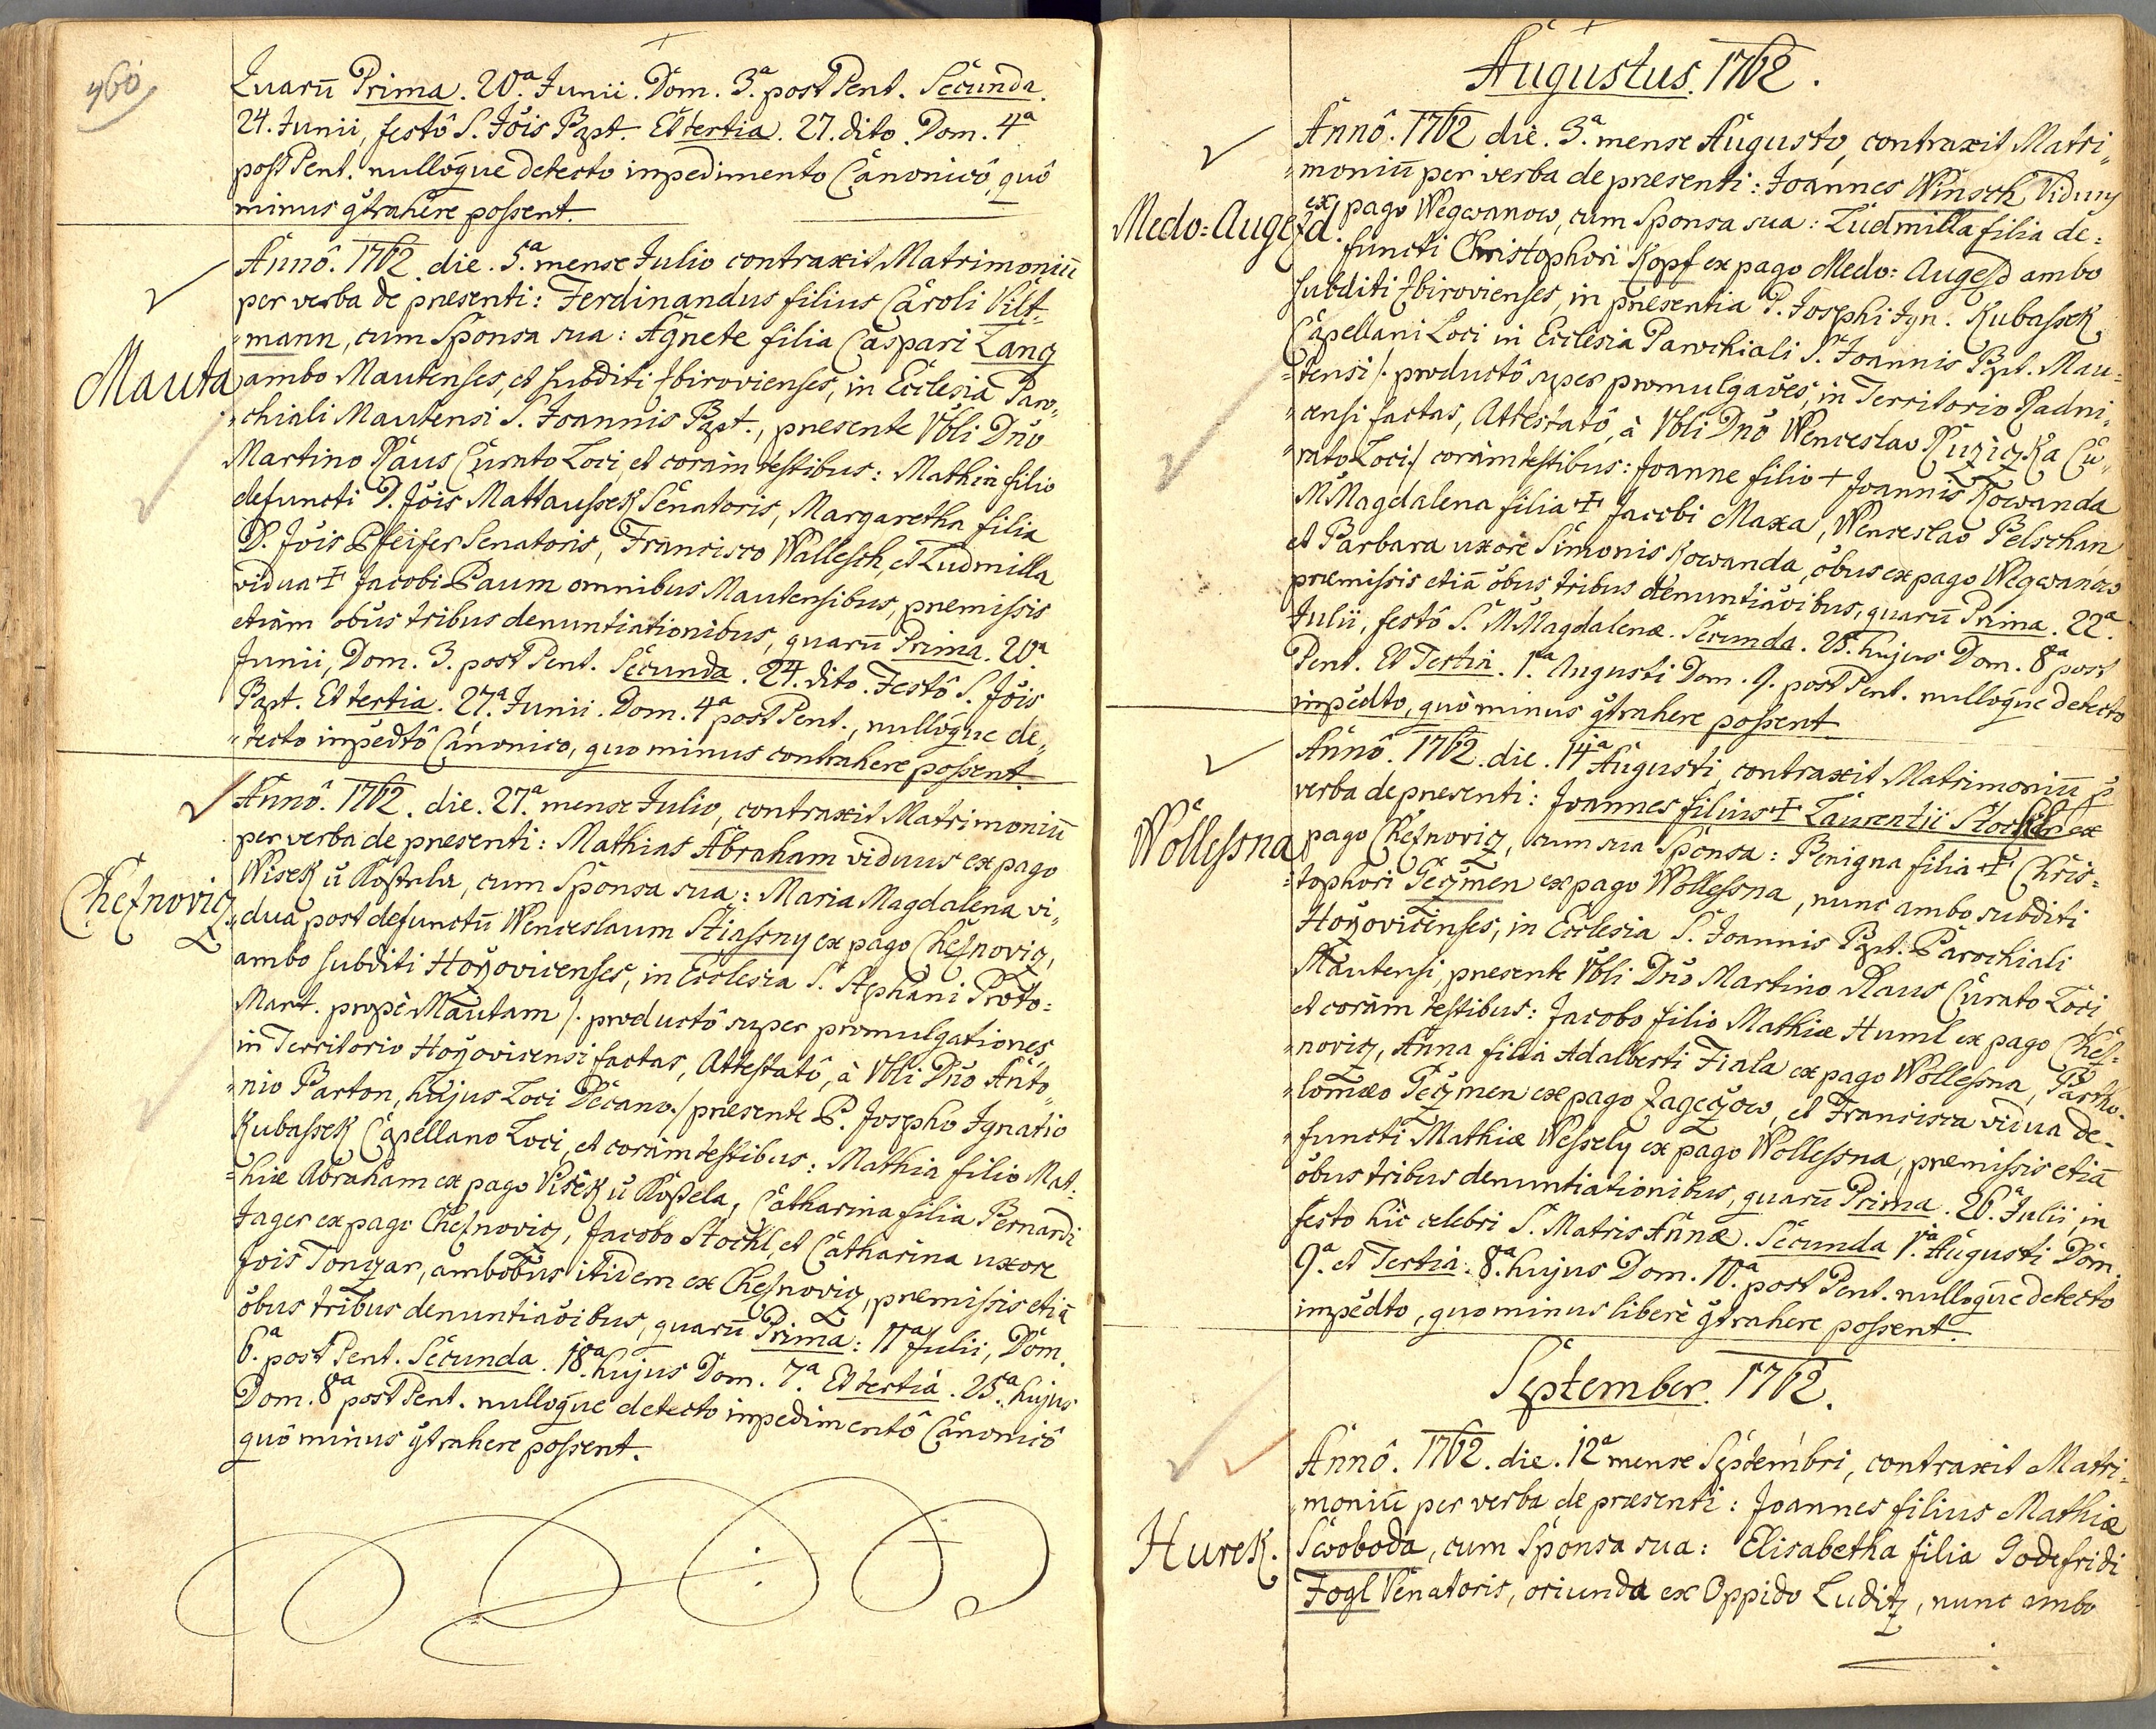 460
Quarū Prima. 20.a Junii. Dom. 3.a post Pent. Secunda.
24. Junii, festô S. Jôis Bapt. Et tertia. 27. dito. Dom. 4a
post Pent. nulloq̄ue detecto inpedimento Canonicô, quô
minus gtrahere possent.
Annô. 1762. die. 5.a mense Julio contraxit Matrimoniū
per verba de præsenti: Ferdinandus filius Caroli Vilt=
=mann, cum Sponsa sua: Agnete filia Caspari Lang
Mauta
ambo Mautenses, et subditi Zbirovienses, in Ecclesia Paro=
=chiali Mautensi S. Joannis Bapt., præsente Vbli Dn̄o
Martino Raus Curato Loci, et coràm testibus: Mathia filio
defuncti D. Jôis Mattaussek Senatoris, Margaretha filia
D. Jôis Pfeifer Senatoris, Francisco Wallesch, et Ludmilla
vidua ✝ Jacobi Baum omnibus Mautensibus, præmissis
etiàm ôbus tribus denuntiationibus, quarū Prima. 20.a
Junii, Dom. 3. post Pent. Secunda. 24. dito. Festô S. Jôis
Bapt. Et tertia. 27.a Junii. Dom. 4a post Pent., nulloq̄ue de=
=tecto inpedtô Canonico, quo minus contrahere possent.
Annô. 1762. die. 27.a mense Julio, contraxit Matrimoniū
per verba de præsenti: Mathias Abraham viduus ex pago
Wisek ů Kostela, cum Sponsa sua: Maria Magdalena vi=
Cheznoviz
=dua post defunctū Wenceslaum Stiassny ex pago Cheznoviz,
ambo subditi Hořovicenses, in Ecclesia S. Stephani Proto=
Mart. propè Mautam /. productô super promulgationes
in Territorio Hořovicensi factas, Attestatô, à Vbli Dn̄o Anto=
=nio Barton, hujus Loci Decano./ præsente P. Josepho Ignatio
Kubassek Capellano Loci, et coràm testibus: Mathia filio Mat=
=hiæ Abraham ex pago Visek ů Kostela, Catharina filia Bernardi
Jager ex pago Cheznoviz, Jacobo Stochl, et Catharina uxore
Jois Tonzar, ambobus itidem ex Cheznoviz, præmissis etiā
ôbus tribus denuntiaôibus, quarū Prima: 11a Julii, Dom.
6.a post Pent. Secunda. 18.a hujus Dom. 7.a Et tertia. 25.a hujus
Dom. 8a post Pent. nulloq̄ue detecto inpedimentô Canonicô
quô minus gtrahere possent.
Augustus. 1762.
Annô. 1762 die. 3.a mense Augusto, contraxit Matri=
=moniū per verba de præsenti: Joannes Winsch Viduus
Medo=Augezd.
ex pago Wegwanow, cum Sponsa sua: Ludmilla filia de=
functi Christophori Kopf ex pago Medo=Augezd ambo
subditi Zbirovienses, in præsentia P. Josephi Ign. Kubassek
Capellani Loci in Ecclesia Parochiali S. Joannis Bapt. Mau=
=tensi /. productô super promulgaôes, in Territorio Radni=
=censi factas, Attestatô, à Vbli Dn̄o Wenceslao Ruziczka Cu=
=rato Loci./ coràm testibus: Joanne filio ✝ Joannis Kowanda
M Magdalena filia ✝ Jacobi Maxa, Wenceslao Pelschan
et Barbara uxore Simonis Kowanda, ôbus ex pago Wegwanow
præmissis etiā ôbus tribus denuntiaôibus, quarū Prima. 22.a
Julii, festô S. M Magdalenæ. Secunda. 25. hujus Dom. 8a post
Pent. Et Tertia. 1.a Augusti Dom. 9. post Pent. nulloq̄ue detecto
inpedto, quò minus gtrahere possent.
Annô. 1762. die. 14a Augusti, contraxit Matrimoniū p
verba de præsenti: Joannes filius ✝ Laurentii Stochl ex
Wollessna
pago Cheznoviz, cum sua Sponsa: Benigna filia ✝ Chris=
=tophori Geczmen ex pago Wollessna, nunc ambo subditi
Hořovicenses, in Ecclesia S. Joannis Bapt. Parochiali
Mautensi, præsente Vbli Dn̄o Martino Raus Curato Loci
et coràm testibus: Jacobo filio Mathiæ Huml ex pago Chez=
=noviz, Anna filia Adalberti Fiala ex pago Wollessna, Bartho=
=lomæo Geczmen ex pago Zageczow, et Francisca vidua de=
=functi Mathiæ Wessely ex pago Wollessna, præmissis etiā
ôbus tribus denuntiationibus, quarū Prima. 26.a Julii, in
festo hìc celebri S. Matris Annæ. Secunda 1.a Augusti Dom.
9.a et Tertia. 8.a hujus Dom. 10.a post Pent. nulloq̄ue detecto
impedto, quo minus liberè gtrahere possent.
September. 1762.
Annô. 1762. die. 12a mense Septembri, contraxit Matri=
=moniū per verba de præsenti: Joannes filius Mathiæ
Hurek.
Swoboda, cum Sponsa sua: Elisabetha filia Godefridi
Fogl Venatoris, oriunda ex Oppido Luditz, nunc ambo